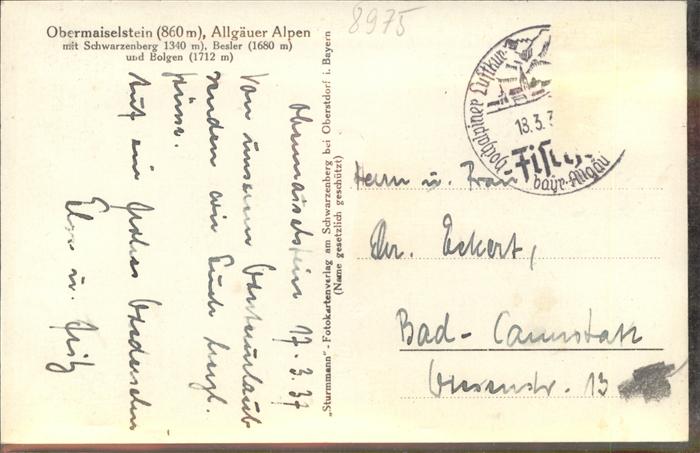 Obermaiselstein (860 m), Allgäuer Alpen
mit Schwarzenberg 1340 m), Besler (1680 m)
und Bolgen (1712 m)
8975
Obermaiselstein 17.3.37
Von unserem Winterurlaub
senden wir Euch herzl.
Grüsse.
Auf ein frohes Wiedersehn
Elsa u. Fritz
„Sturmmann"-Fotokartenverlag am Schwarzenberg bei Oberstdorf i. Bayern
(Name gesetzlich geschützt)
hochalpiner Luftkur
18.3.3
Fisch
bayr. Allgäu
Herrn u. Frau
Dr. Eckert,
Bad-Cannstatt
str. 13